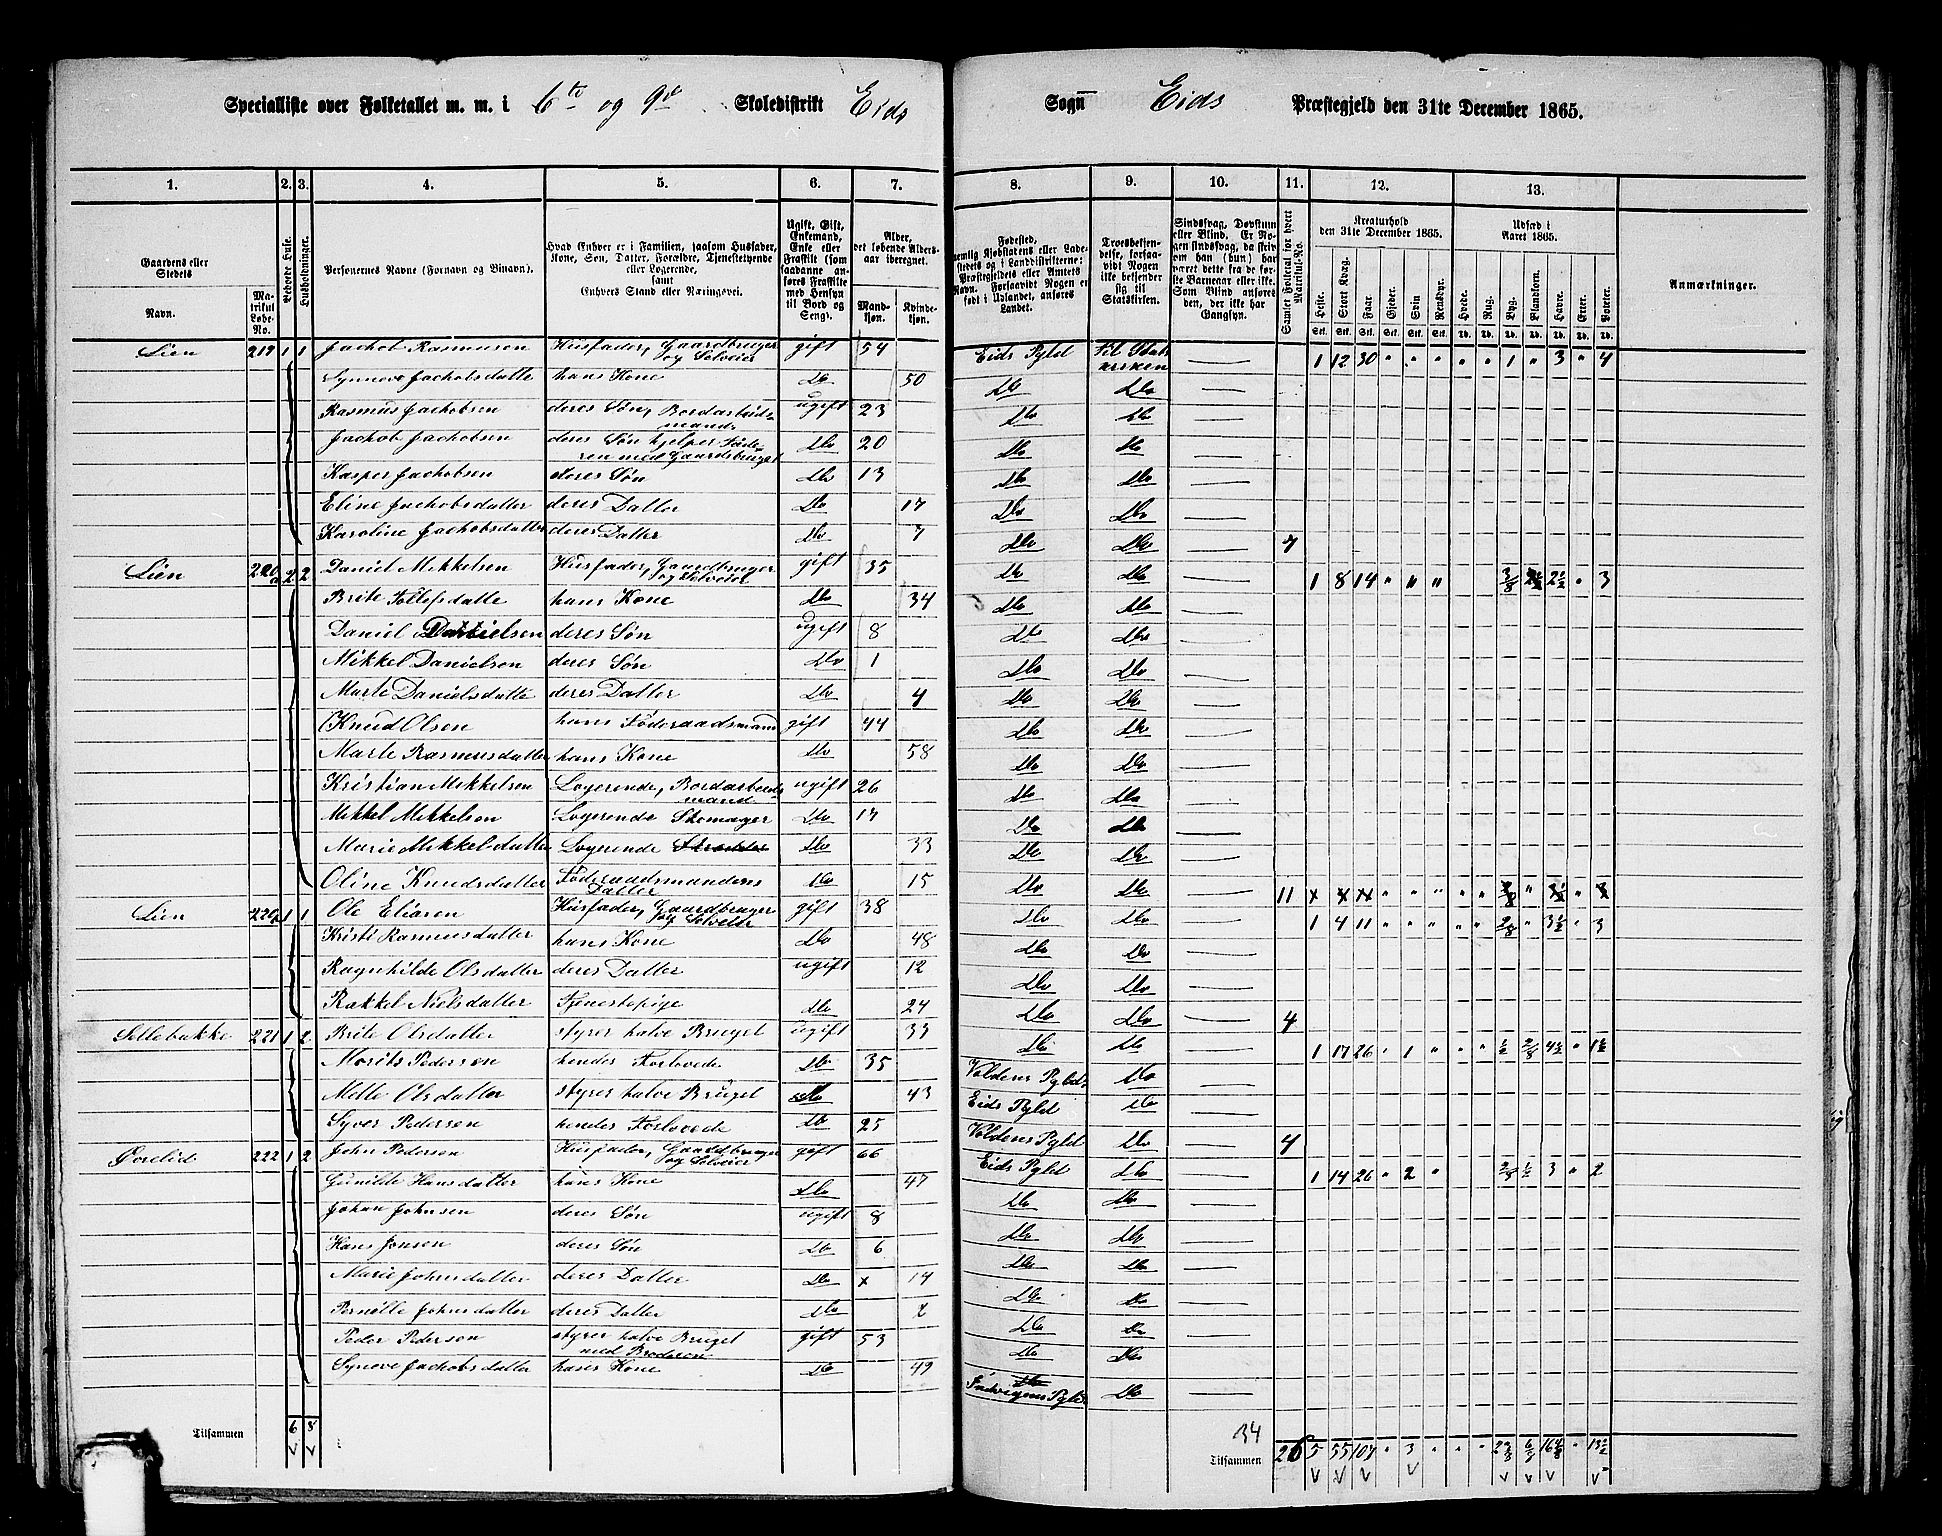 Specialliste over Folketallet m. m. i 6te og 9de Skoledistrikt Eids Sogn Eids Præstegjeld den 31te December 1865.
1. 2. 3. 4. 5. 6. 7. 8. 9. 10. 11. 12. 13.
Gaardens eller Stedets Navn. Matrikul Løbe-No. Beboede Huse. Husholdninger. Personernes Navne (Fornavn og Binavn). Hvad Enhver er i Familien, saasom Husfader, Kone, Søn, Datter, Forældre, Tjenestetyende eller Logerende, samt Enhvers Stand eller Næringsvei. Ugift, Gift, Enkemand, Enke eller Fraskilt (som saadanne anføres Fraskilte med Hensyn til Bord og Seng). Alder, det løbende Aldersaar iberegnet. Mandkjøn. Kvindekjøn.
Troesbekjendelse, forsaavidt Nogen ikke bekjender sig til Statskirken. Samlet Folketal for hvert Matrikul-No. Kreaturhold den 31te December 1865. Udsæd i Aaret 1865. Anmærkninger.
Heste. Stort Kvæg. Faar. Gjeder. Svin. Rensdyr. Hvede. Rug. Byg. Blandkorn. Havre. Erter. Poteter.
Lien 219 1 1 Jachob Rasmusen Husfader, Gaardbruger og Selveier gift 54 Eids Pgld Til Statskirken 1 12 30 " " " " " 1 " 3 " 4
Synneve Jachobsdatte hans Kone Do 50 Do Do
Rasmus Jachobsen deres Søn, Bordarbeidsmand ugift 23 Do Do
Jachob Jachobsen deres Søn hjelper Faderen med Gaardsbruget Do 20 Do Do
Kasper Jachobsen deres Søn Do 13 Do Do
Eline Jachobsdatter deres Datter Do 17 Do Do
Karoline Jachobsdatter deres Datter Do 7 Do Do 7
Lien 220a 2 2 Daniel Mikkelsen Husfader, Gaardbruger og Selveier gift 35 Do Do 1 8 14 " " " 3/8 2½ " 3
Brite Tollefsdatte hans Kone Do 34 Do Do
Daniel Danielsen deres Søn ugift 8 Do Do
Mikkel Danielsen deres Søn Do 1 Do Do
Marte Danielsdatte deres Datter Do 4 Do Do
Knud Olsen hans Føderaadsmand gift 44 Do Do
Marte Rasmusdatter hans Kone Do 58 Do Do
Kristian Mikkelsen Logerende, Bordarbeidsmand ugift 26 Do Do
Mikkel Mikkelsen Logerende Skomager Do 17 Do Do
Marie Mikkelsdatter Logerende Do 33 Do Do
Oline Knudsdatter Føderaadsmandens Datter Do 15 Do Do 11
Lien 220 1 1 Ole Eliasen Husfader, Gaardbruger og Selveier gift 38 Do Do 1 4 11 " " " " " 2/8 " 3½ " 3
Kristi Rasmusdatter hans Kone Do 48 Do Do
Ragnhilde Olsdatter deres Datter ugift 12 Do Do
Rakkel Nielsdatter Tjenestepige Do 24 Do Do 4
Settebakke 221 1 2 Brite Olsdatter styrer halve Bruget ugift 33 Do Do 1 17 26 " 1 " " " ½ 2/8 4½ " 1½
Morits Pedersen hendes Forlovede Do 35 Voldens Pgld Do
Mette Olsdatter styrer halve Bruget Do 43 Eids Pgld Do
Syver Pedersen hendes Forlovede Do 25 Voldens Pgld Do 4
Øvrelid 222 1 2 John Pedersen Husfader, Gaardbruger og Selveier gift 66 Eids Pgld Do 1 14 26 " 2 " ½ 3 " 2
Gunilde Hansdatter hans Kone Do 47 Do Do
Johan Johnsen deres Søn ugift 8 Do Do
Hans Jonsen deres Søn Do 6 Do Do
Marie Johnsdatter deres Datter x 14 Do Do
Pernille Johnsdatter deres Datter Do 2 Do Do
Peder Pedersen styrer halve Bruget med Broderen gift 53 Do Do
Synove Jachobsdatter hans Kone Do 49 Indvigens Pgld Do
34
Tilsammen 6 8 Tilsammen 26 5 55 107 " 3 " " "